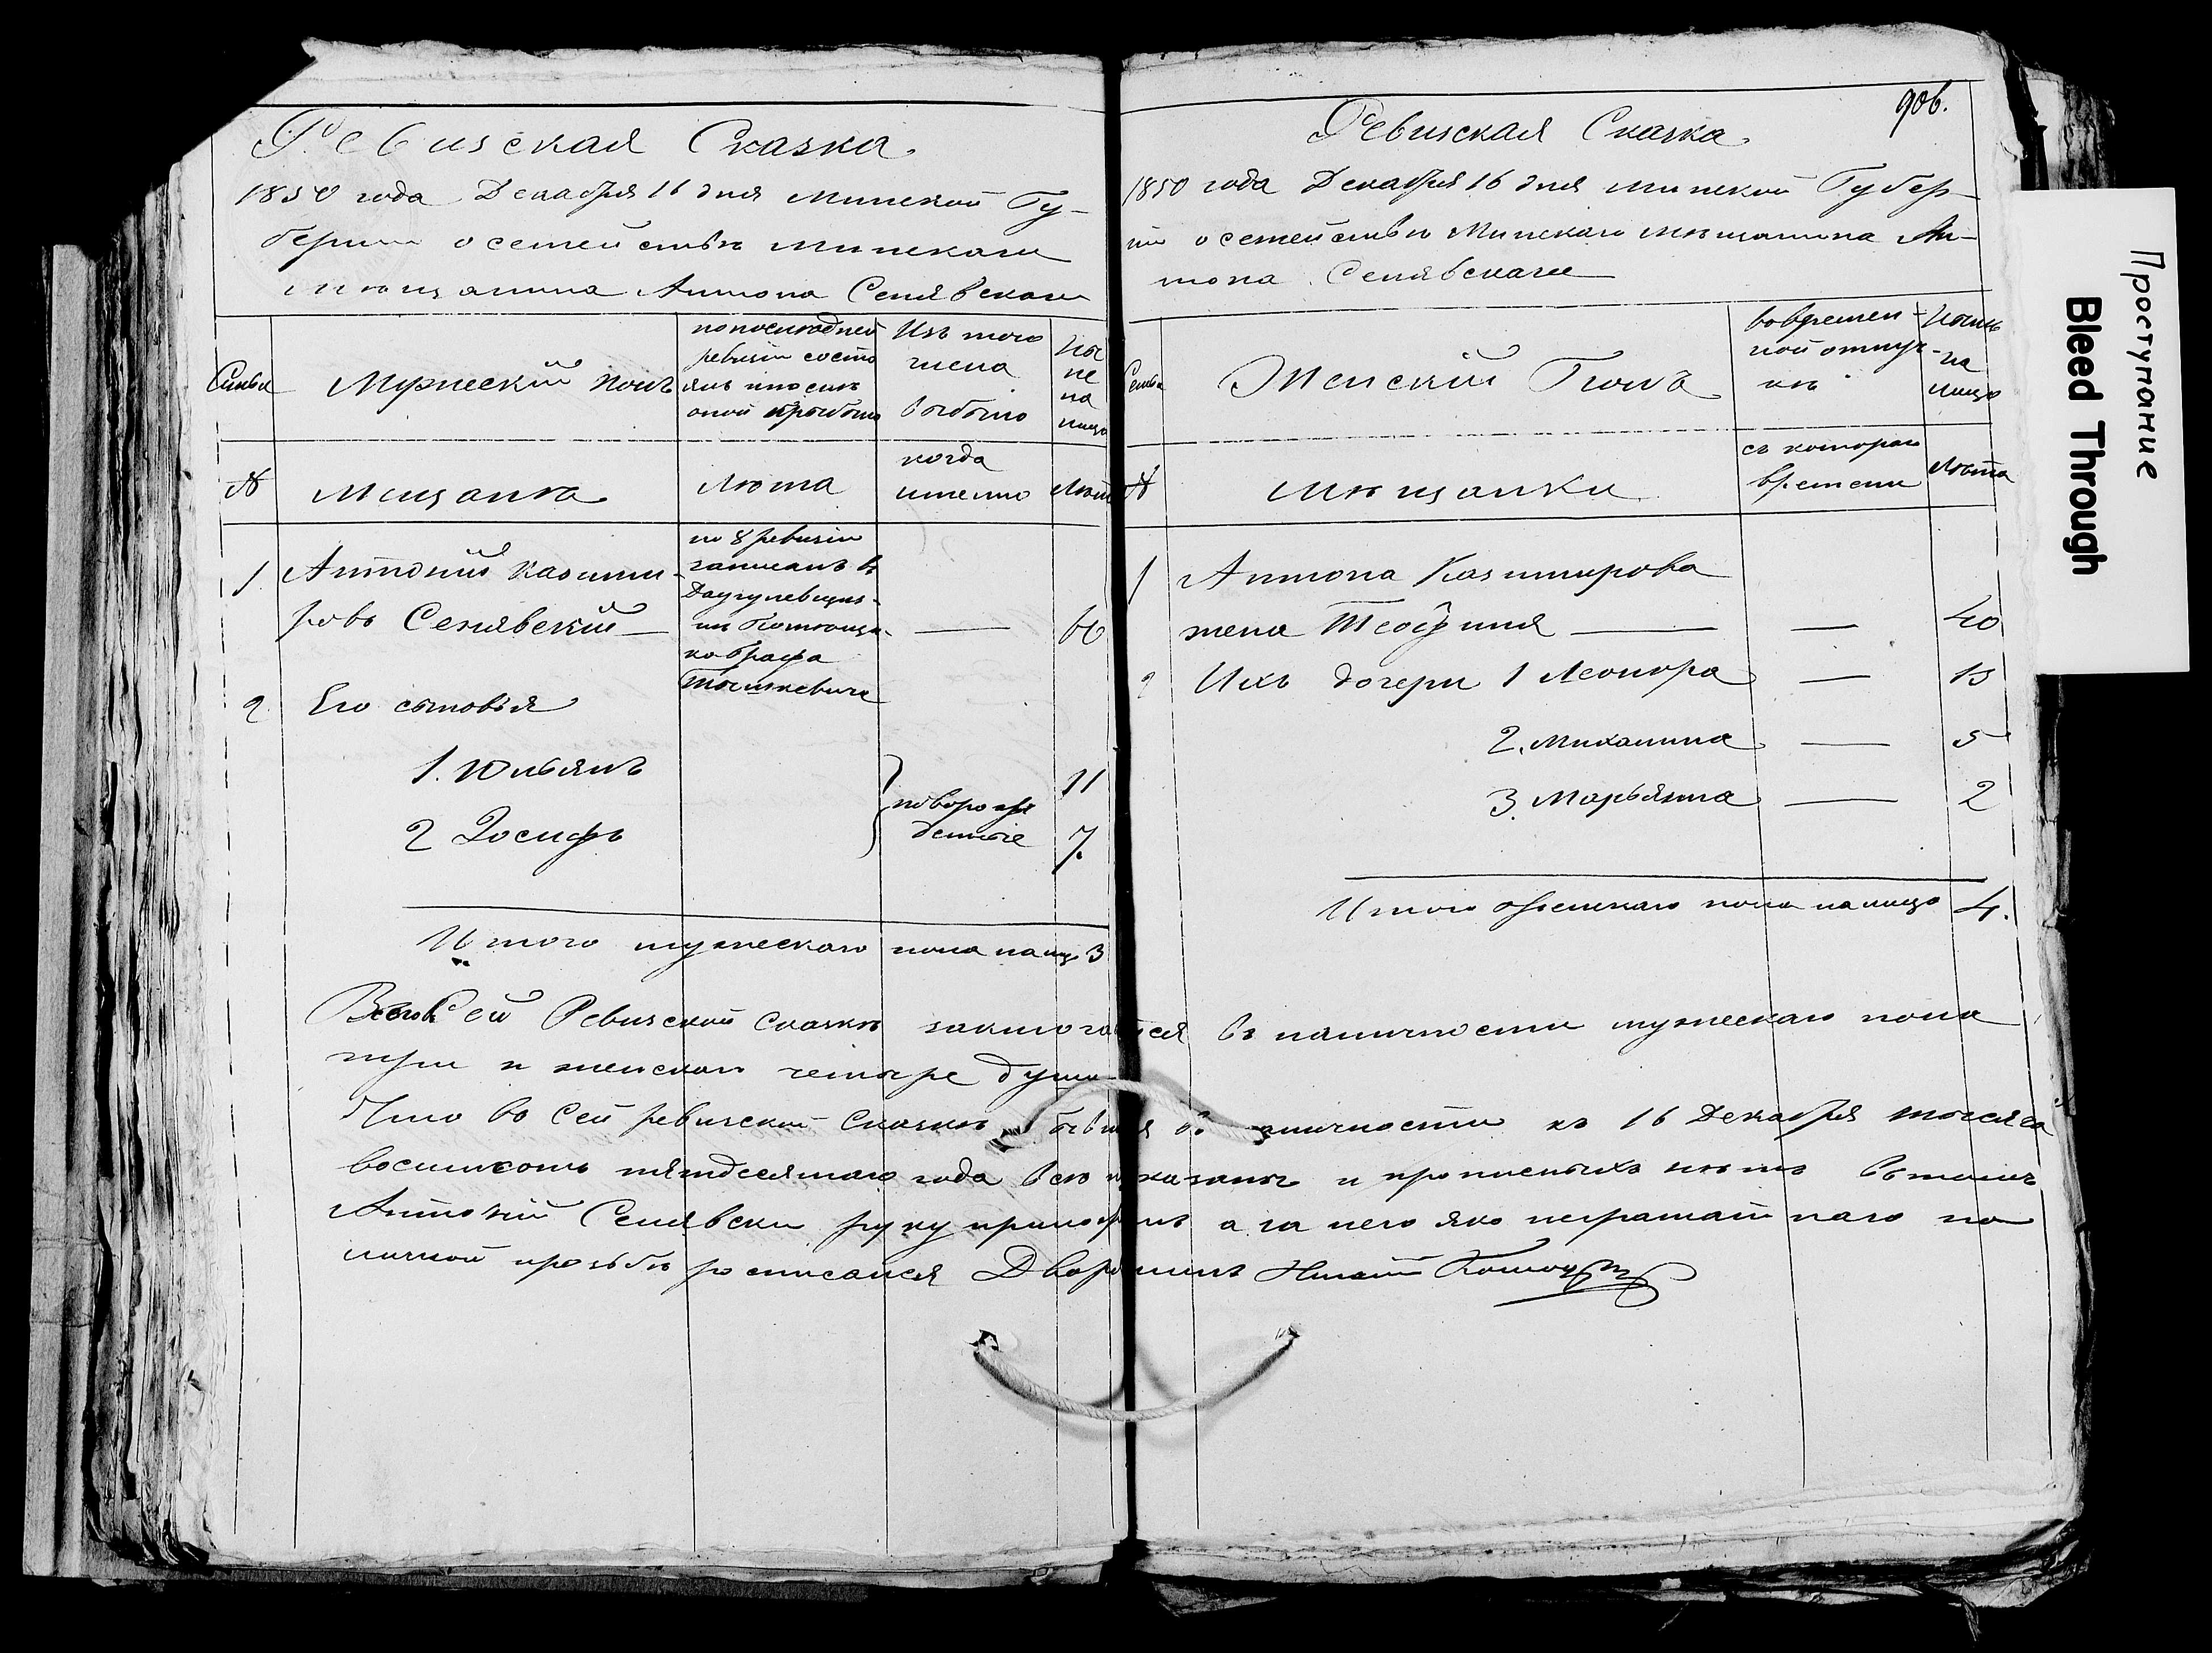 Ревизская Сказка
1850 года Декабря 16 дня Минской Гу-
берніи о семействѣ Минскаго
мѣщанина Антона Сенявскаго
Семья
Мужескій полъ
по последней
ревизіи состо
ялъ или послѣ
оной прибыло
Изъ того
числа
выбыло
Ны
не
на
лицо
№
Мещанѣ
Лѣта
когда
именно
Лѣта
1
Антоній Казими-
ровъ Сенявскій
по 8 ревизіи
записанъ в
графа
Тышкевича
60
2
Его сыновья
1. Юльянъ
11
2 Іосифъ
7.
новорож
денные
Итого мужескаго пола на лицо 3
906.
Ревизская Сказка
1850 года Декабря 16 дня Минской Губер-
ніи о семействѣ Минскаго мѣщанина Ан-
тона Сенявскаго
Семья
Женскій Полъ
во времен-
ной отлуч-
кѣ
Нынѣ
на
лицо
№
мѣщанки
съ котораго
времени
Лѣта
1
Антона Казимирова
жена Теофиля
40
2
Ихъ дочери 1 Леонора
13
2. Михалина
5
3. Марьянна
2
Итого женскаго пола на лицо 4.
Всего в сей Ревизской Сказкѣ заключается въ наличности мужескаго пола
три и женскаго четыре души
Что во сей ревизской Сказкѣ въ наличности къ 16 Декабря тысяча
восимсотъ пятдесятаго года всѣ показаны и прописныхъ нѣтъ въ томъ
Антоній Сенявски руку приложилъ а за него яко неграматнаго по
личной прозьбѣ росписался Дворянинъ
Проступание
Bleed Through